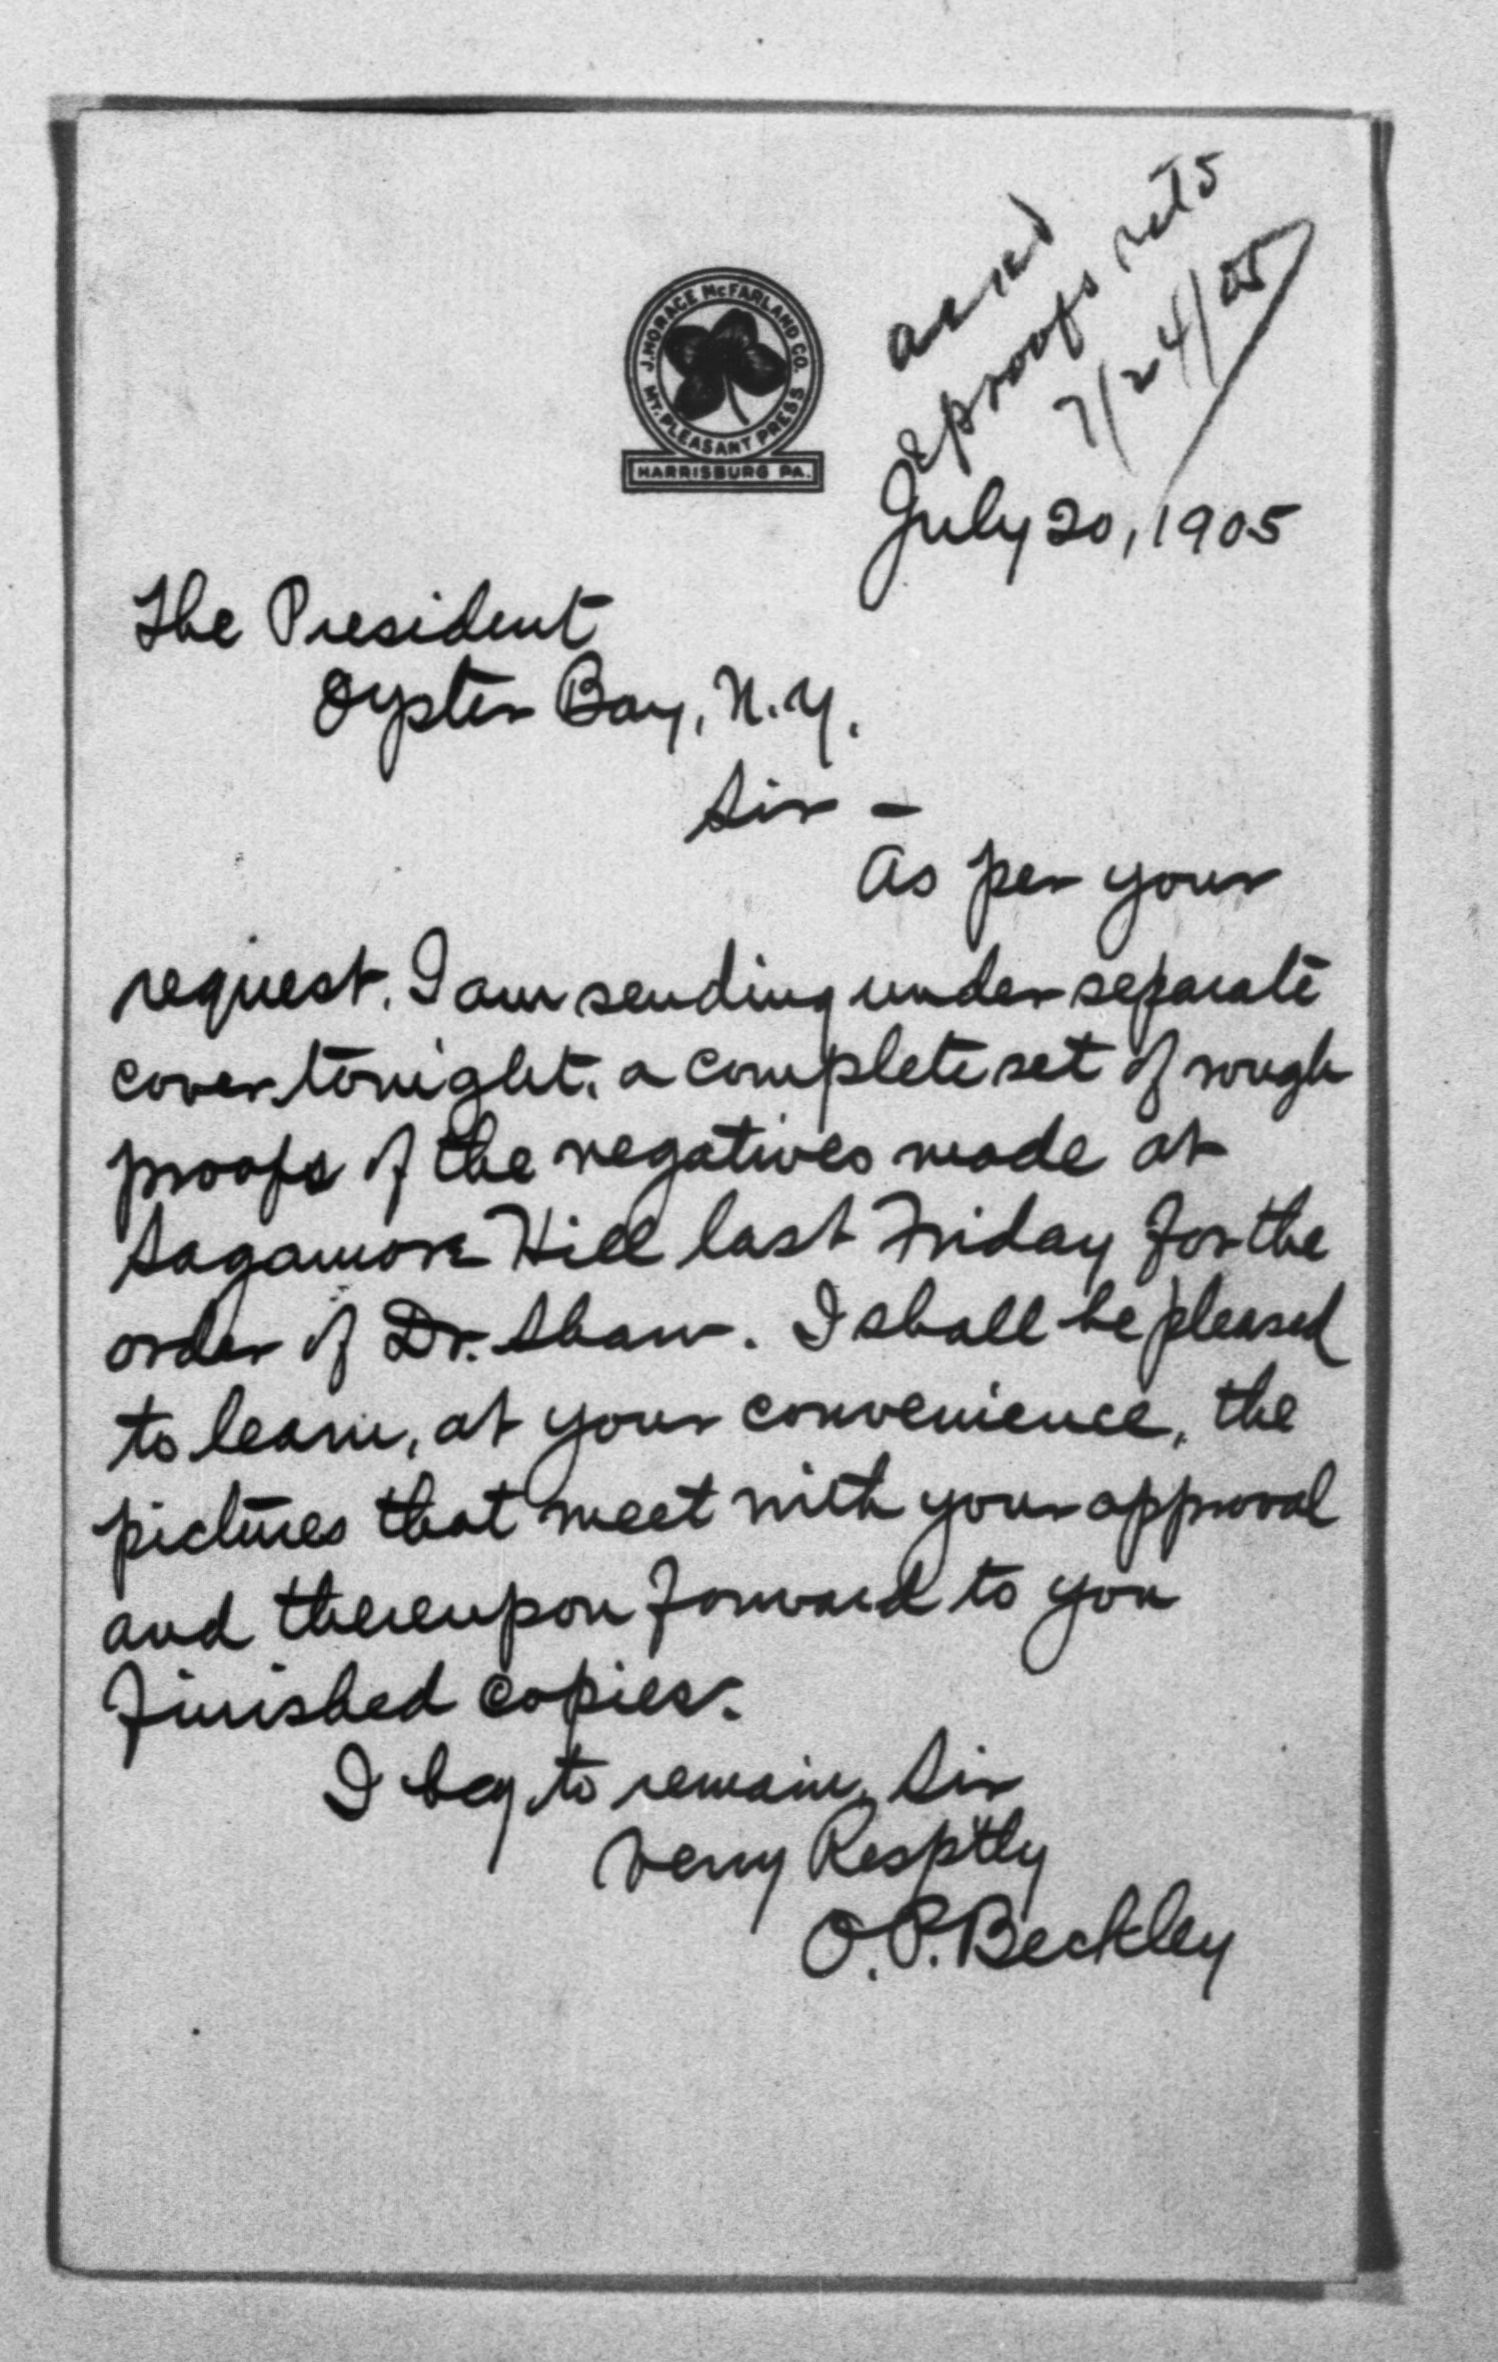 ackd
& proofs retd
7/24/05
J. HORACE McFARLAND CO.
MT. PLEASANT PRESS
HARRISBURG PA.
July 20, 1905
The President
Oyster Bay, N.Y.
Sir –
As per your
request, I am sending under separate
cover tonight, a complete set of rough
proofs of the negatives made at
Sagamore Hill last Friday for the
order of Dr. Shaw. I shall be pleased
to learn, at your convenience, the
pictures that meet with your approval
and thereupon forward to you
finished copies.
I beg to remain, Sir
Very Resptly
O. P. Beckley